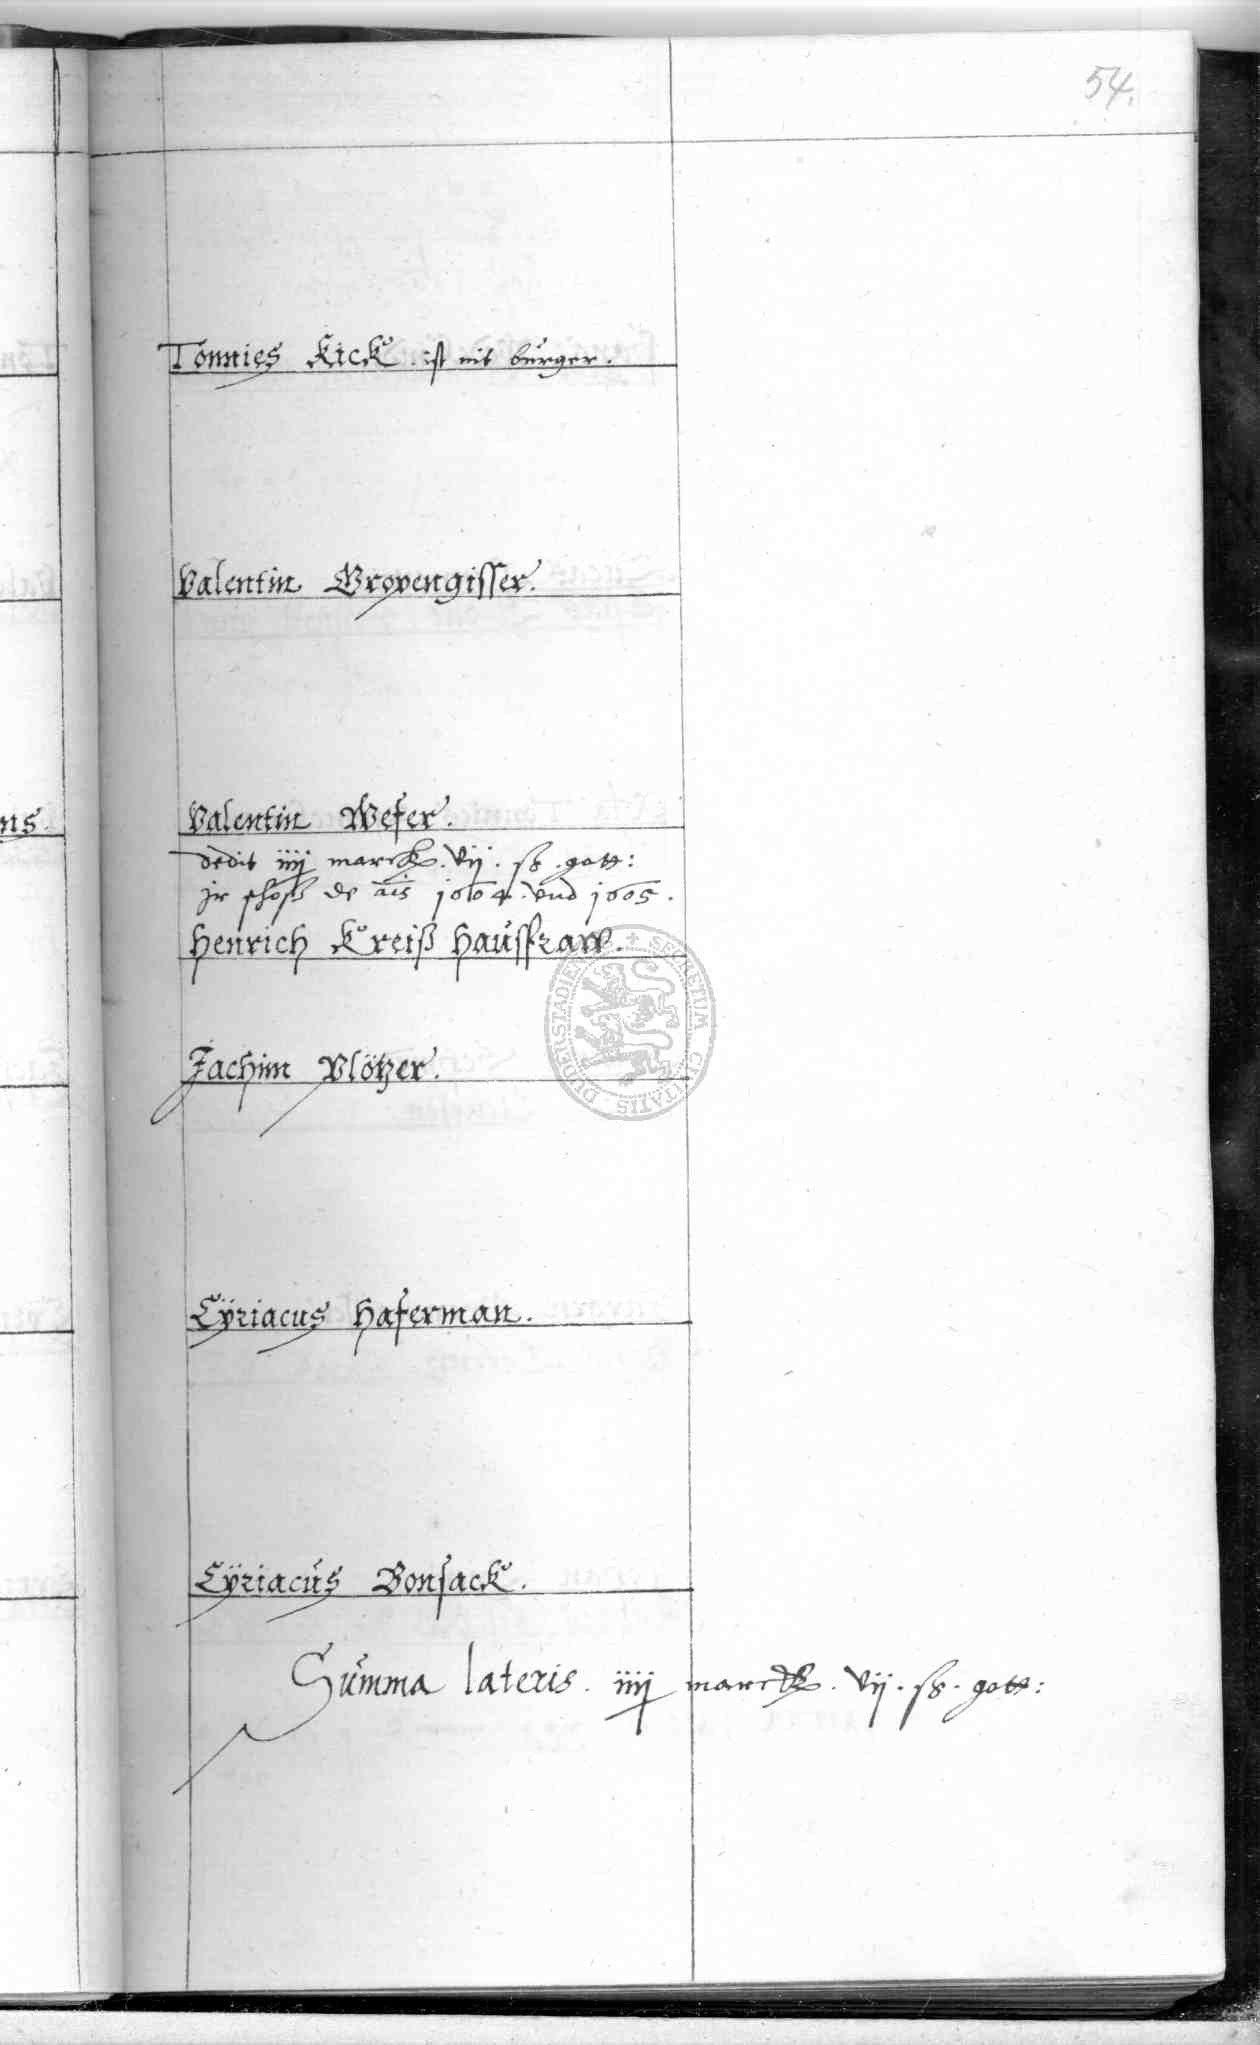 54.
Tonnies Kick. ist nit burger.
Valentin Gropengisser.
ns.
Valentin Wefer.
dedit iiij marck. vij. ß. gott:
jr schoß de ais 1604. vnd 1605.
Henrich Kreiß haußfraw.
Jachim Plötzer.
Cÿriacus Haferman.
Cÿriacus Bonsack.
Summa lateris. iiij marck. vij. ß. gott:
SECRETUM CIVITATIS DUDERSTADIENSIS